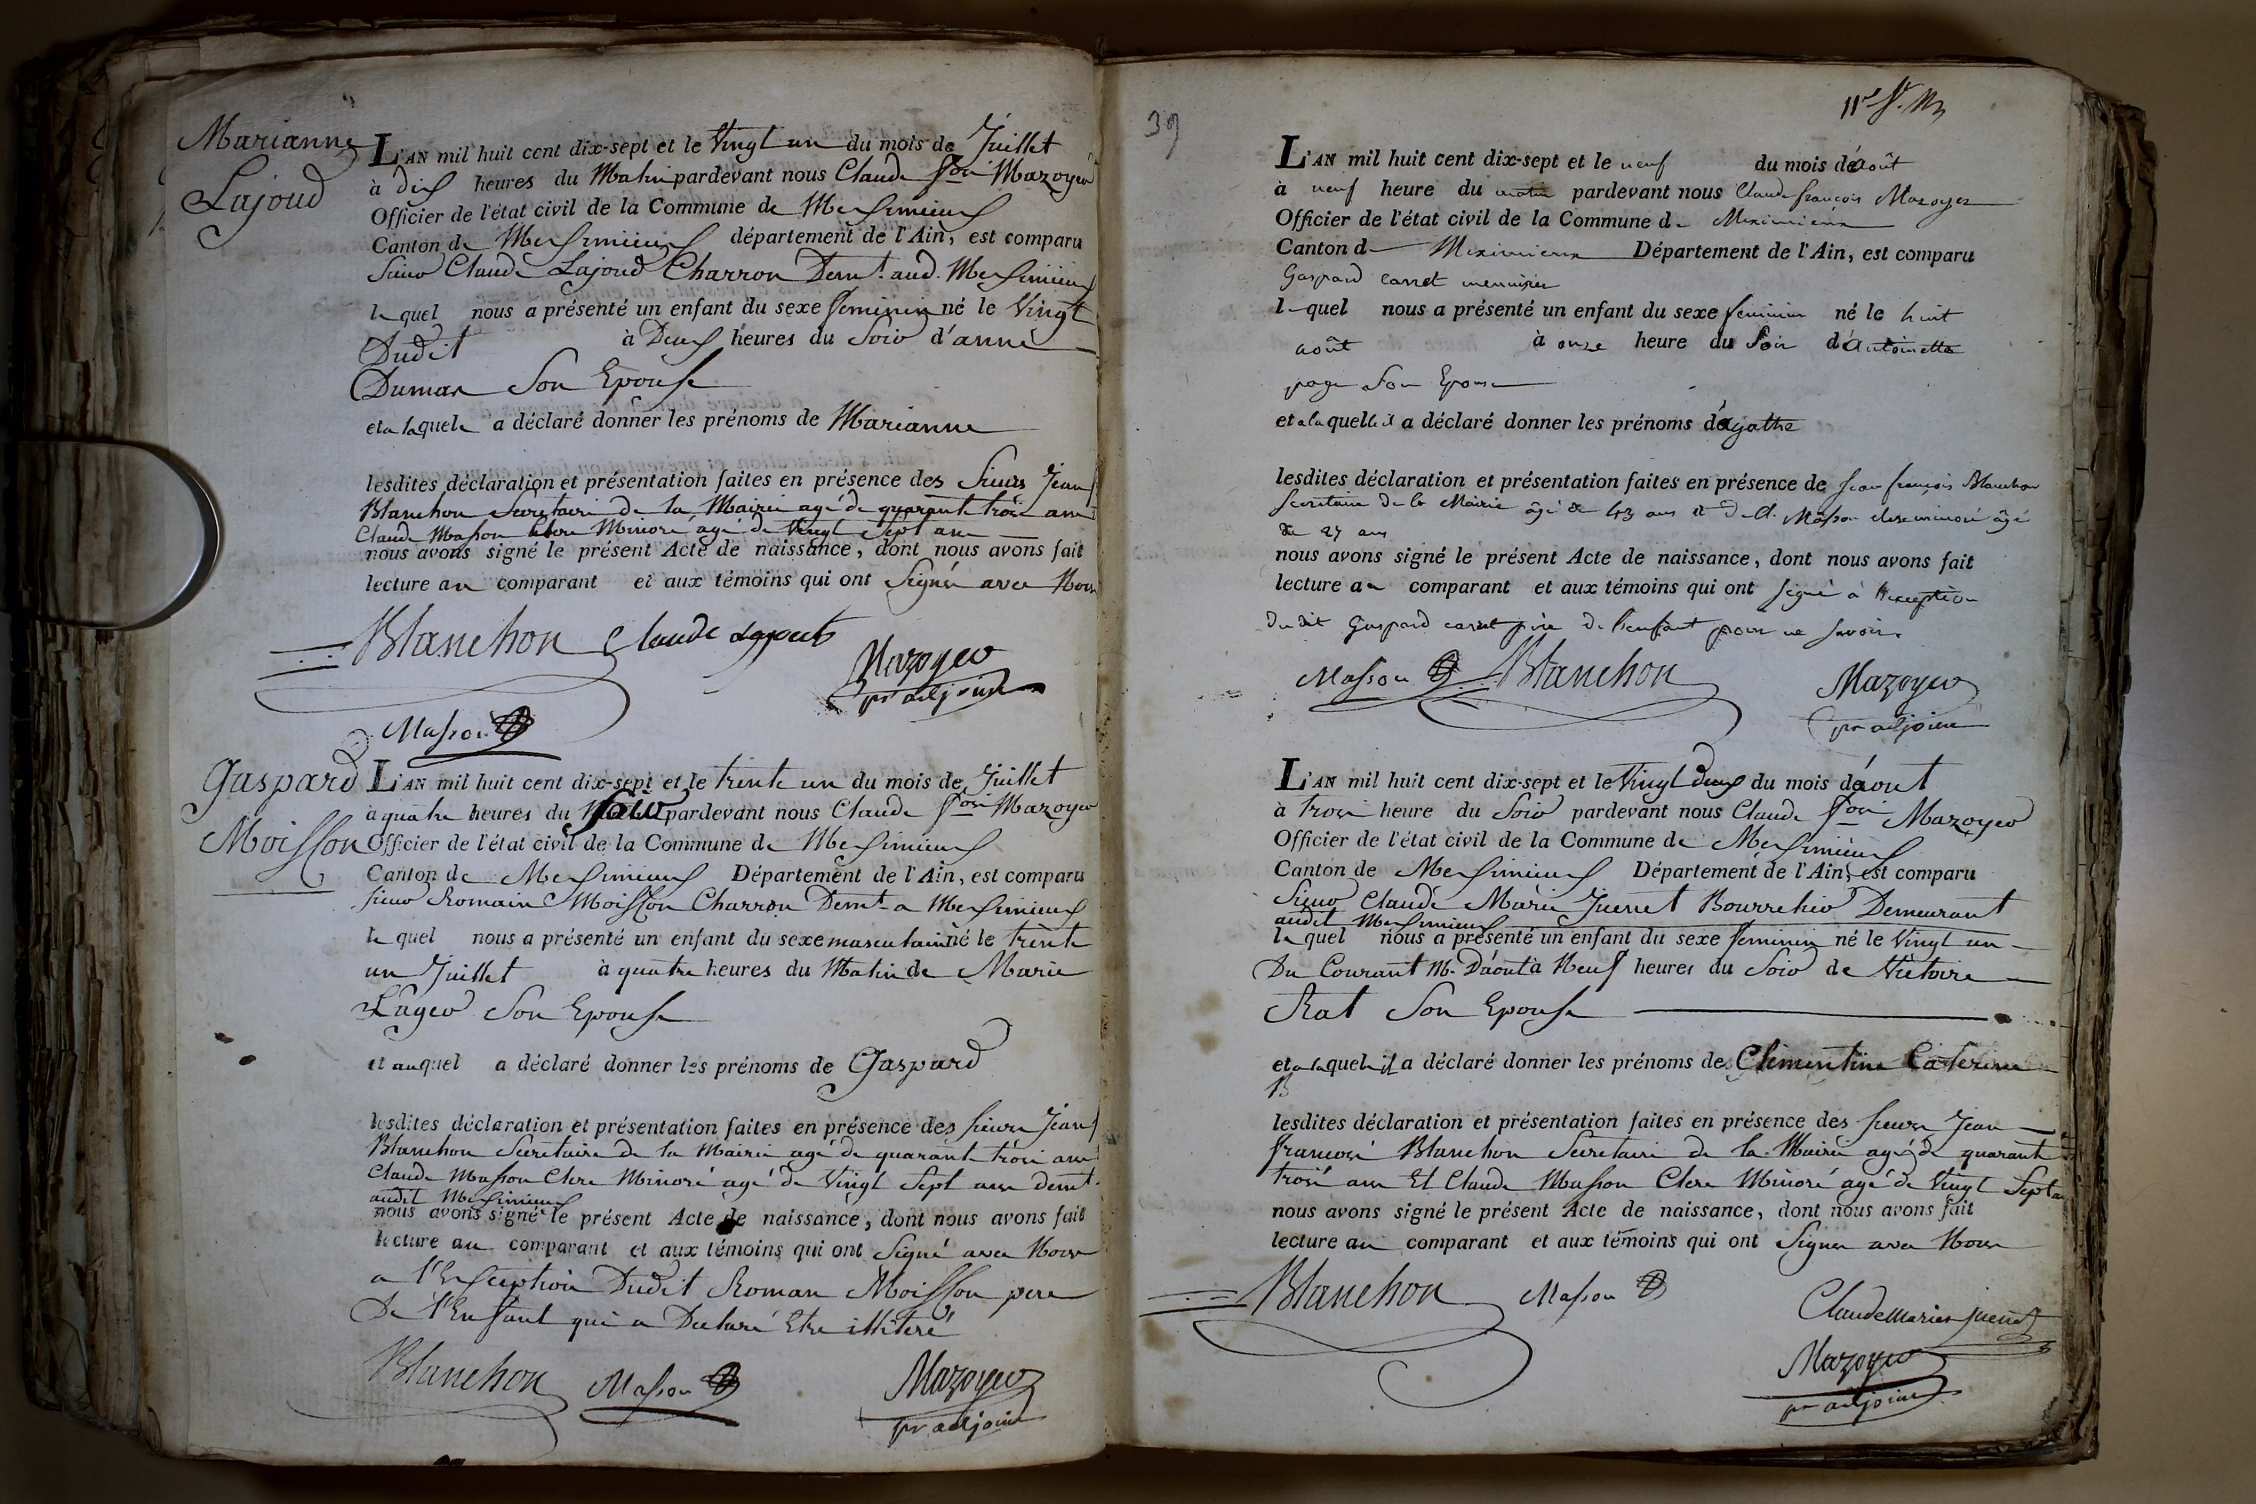 Marianne
Lajoud
L'AN mil huit cent dix-sept et le Vingt un du mois de Juillet
à dix heures du Matin pardevant nous Claude fcois Mazoyer
Officier de l'état civil de la Commune de Meximieux
Canton de Meximieux département de l'Ain, est comparu
Sieur Claude Lajoud Charron Demt. aud. Meximieux
lequel nous a présenté un enfant du sexe feminin né le Vingt
Dudit à Deux heures du Soir d'anne
Dumas Son Epouse
et a laquele a déclaré donner les prénoms de Marianne
lesdites déclaration et présentation faites en présence des Sieurs Jean f
Blanchon Secretaire de la Mairie agé de quarante trois ans
Claude Masson Clerc Minoré agé de Vingt Sept ans
nous avons signé le présent Acte de naissance, dont nous avons fait
lecture au comparant et aux témoins qui ont Signés avec Nous
Blanchon Claude
Mazoyer
pr adjoint
Masson
Gaspard
Moisson
L'AN mil huit cent dix-sept et le trente un du mois de Juillet
à quatre heures du Soir pardevant nous Claude fcois Mazoyer
Officier de l'état civil de la Commune de Meximieux
Canton de Meximieux Département de l'Ain, est comparu
Sieur Romain Moisson Charron Demt. a Meximieux
le quel nous a présenté un enfant du sexe masculain né le trente
un Juillet à quatre heures du Matin de Marie
Lager Son Epouse
et auquel a déclaré donner les prénoms de Gaspard
lesdites déclaration et présentation faites en présence des Sieurs Jean f
Blanchon Secretaire de la Mairie agé de quarante trois ans
Claude Masson Clerc Minoré agé de Vingt Sept ans demt.
audit Meximieux
nous avons signé le présent Acte de naissance, dont nous avons fait
lecture au comparant et aux témoins qui ont Signé avec Nous
a l'Exception Dudit Roman Moisson pere
De l'Enfant qui a Declaré Etre illiteré
Blanchon Masson Mazoyer
pr adjoint
39
L'AN mil huit cent dix-sept et le neuf du mois d'août
à neuf heure du matin pardevant nous Claude françois Mazoyer
Officier de l'état civil de la Commune de Meximieux
Canton de Meximieux Département de l'Ain, est comparu
Gaspard carret menuisier
le quel nous a présenté un enfant du sexe feminin né le huit
août à onze heure du Soir d'antoinette
page Son Epouse
et a la quelle il a déclaré donner les prénoms d'agathe
lesdites déclaration et présentation faites en présence de Jean françois Blanchon
Secretaire de la Mairie âgé de 43 ans et de Cl. Masson clerc minoré âgé
de 27 ans
nous avons signé le présent Acte de naissance, dont nous avons fait
lecture au comparant et aux témoins qui ont signé à l'exception
du dit Gaspard carret père de l'enfant pour ne savoir.
Masson Blanchon Mazoyer
pr adjoint
L'AN mil huit cent dix-sept et le Vingt deux du mois d'aout
à trois heure du Soir pardevant nous Claude fcois Mazoyer
Officier de l'état civil de la Commune de Meximieux
Canton de Meximieux Département de l'Ain, est comparu
Sieur Claude Marie Juenet Bourrelier Demeurant
audit Meximieux
le quel nous a présenté un enfant du sexe feminin né le Vingt un
Du Courant M. D'août à Neuf heures du Soir de Victoire
Rat Son Epouse
et a laquele il a déclaré donner les prénoms de Clementine Caterine
lesdites déclaration et présentation faites en présence des Sieurs Jean
françois Blanchon Secretaire de la Mairie agé de quarante
trois ans Et Claude Masson Clerc Minoré agé de Vingt Sept ans
nous avons signé le présent Acte de naissance, dont nous avons fait
lecture au comparant et aux témoins qui ont Signés avec Nous
Blanchon Masson Claude Marie Juenet
Mazoyer
pr adjoint